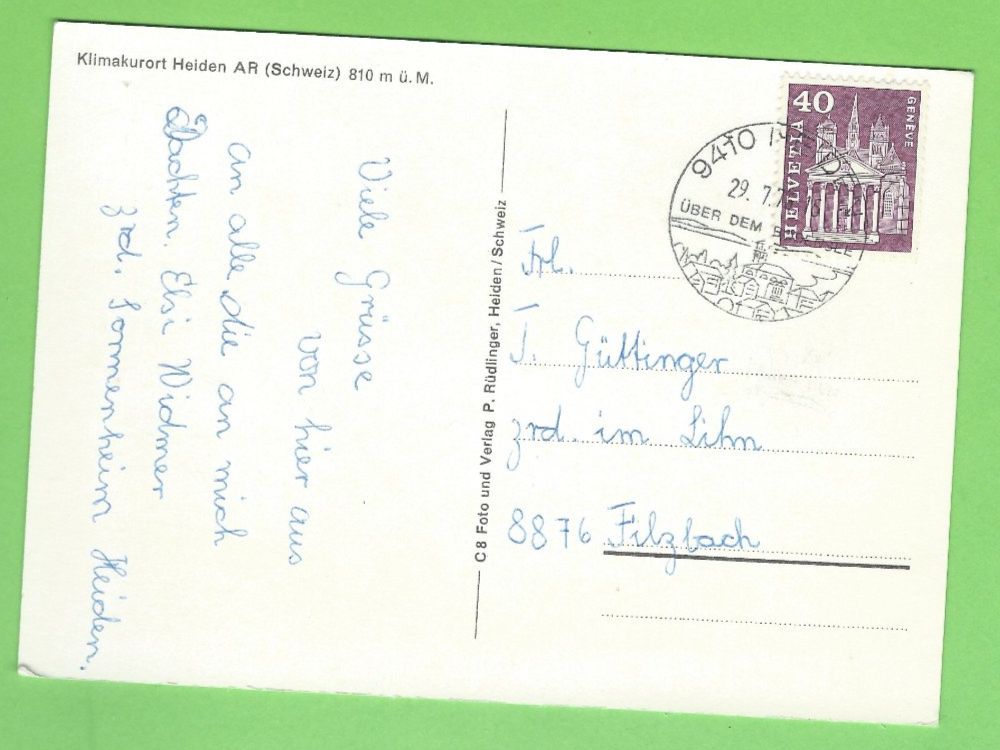 Klimakurort Heiden AR (Schweiz) 810 m ü. M.
Viele Grüsse
von hier aus
an alle die an mich
Dachten. Elsi Widmer
zrd. Sonnenheim Heiden.
C 8 Foto und Verlag P. Rüdlinger, Heiden/Schweiz
40
HELVETIA
GENÈVE
9410
29. 7.
ÜBER DEM
Frl.
T. Güttinger
zrd. im Lihn
8876 Filzbach